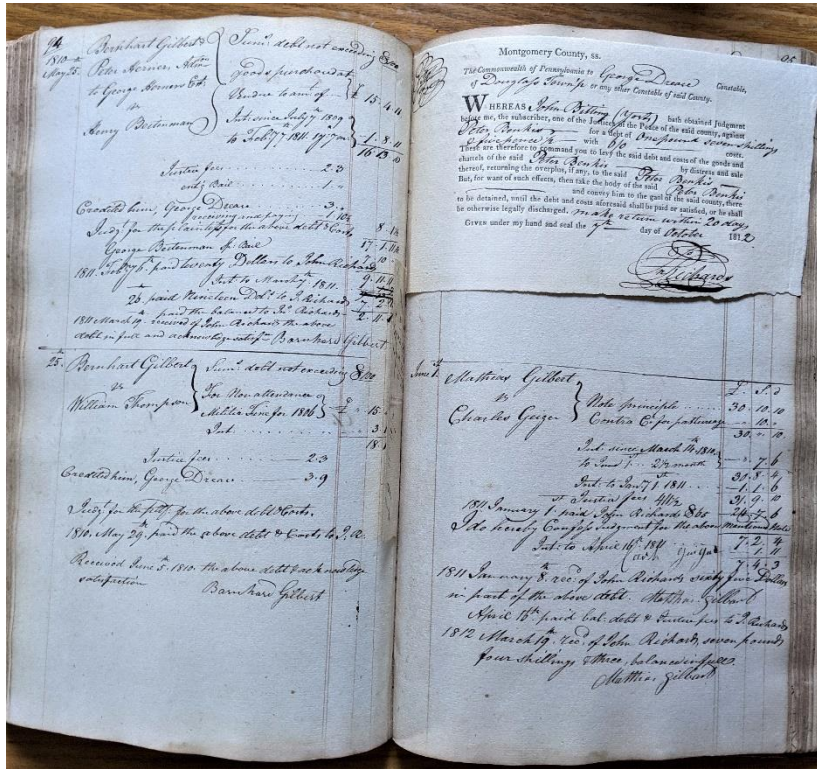 94
1810
May 25.
Bernhart Gilbert &
Peter Herner, Adm
to George Horners Est.
vs
Henry Boitenman
Sum. debt not exceeding $100
goods purchased at
Vendue to am.t of £ 15. 4. 11
Int. since July 7th 1809
to Feb. 7th 1811. 1 y. 7 mo 1. 8. 11
16 13 10
Justice fees 2.3
ent.g Bail 1.
Credited him, George Dreace 3.
receiving and paying 1.10½
Judg.t for the plaintiffs for the above debt & Costs 8. 1½
George Boitenman Sp. Bail 17. 1. 11½
1811. Feb. 7th paid twenty Dollars to John Richards 7. 10.
Int. to March 7th 1811. 9. 11. 11
26. paid Nineteen Dol.s to J. Richards 7. 2. 6
paid the balance to Jn. Richards 2. 11. 5
1811 March 19. received of John Richards the above
debt in full and acknowledge satisf.n Barnhard Gilbert
25. Bernhart Gilbert
vs
William Thompson
Sum.s debt not exceeding $100
For Non attendance
Militia Time for 1806 £ 15.
Int. 3.
18.
Justice fees 2.3
Credited him, George Dreace 3.9
Judg.t for the pltff. for the above debt & Costs
1810. May 29. paid the above debt & Costs to J. R.
Received June 5. 1810. the above debt & acknowledge
satisfaction
Barnhard Gilbert
95
Montgomery County, ss.
The Commonwealth of Pennsylvania to George Dreace Constable,
of Douglass Townsp or any other Constable of said County.
WHEREAS John Bitting (York) hath obtained Judgment
before me, the subscriber, one of the Justices of the Peace of the said county, against
Peter Benkis for a debt of One pound seven shillings
& five pence ½ with 6/0 costs.
These are therefore to command you to levy the said debt and costs of the goods and
chattels of the said Peter Benkis by distress and sale
thereof, returning the overplus, if any, to the said Peter Benkis
But, for want of such effects, then take the body of the said Peter Benkis
and convey him to the gaol of the said county, there
to be detained, until the debt and costs aforesaid shall be paid or satisfied, or he shall
be otherwise legally discharged. make return within 20 days
GIVEN under my hand and seal the 7th day of October 1812
Jn. Richards
June 1st
Mathias Gilbert
vs
Charles Geiger
£. S. d
Note principle 30. 10. 10
Contra Cr. for pasturage 10.
30. 0. 10.
Int. since March 14. 1810.
to June 1st 2½ month 7. 6
30. 8. 4
Int. to Jan.y 1st 1811 1. 1. 6
Justice fees 4/1½ 31. 9. 10
1811 January 1. paid John Richards $65 24. 7. 6
I do hereby Confess Judgment for the above mentioned Note
7. 2. 4
Int. to April 16th 1811 1. 11
7. 4. 3
1811 January 8. rec.d of John Richards sixty five Dollars
in part of the above debt. Mathias Gilbert
April 16th paid bal. debt & Justice fees to J. Richards
1812 March 19. Rec.d of John Richards, seven pounds
four shillings & three, balance in full.
Matthias Gilbert